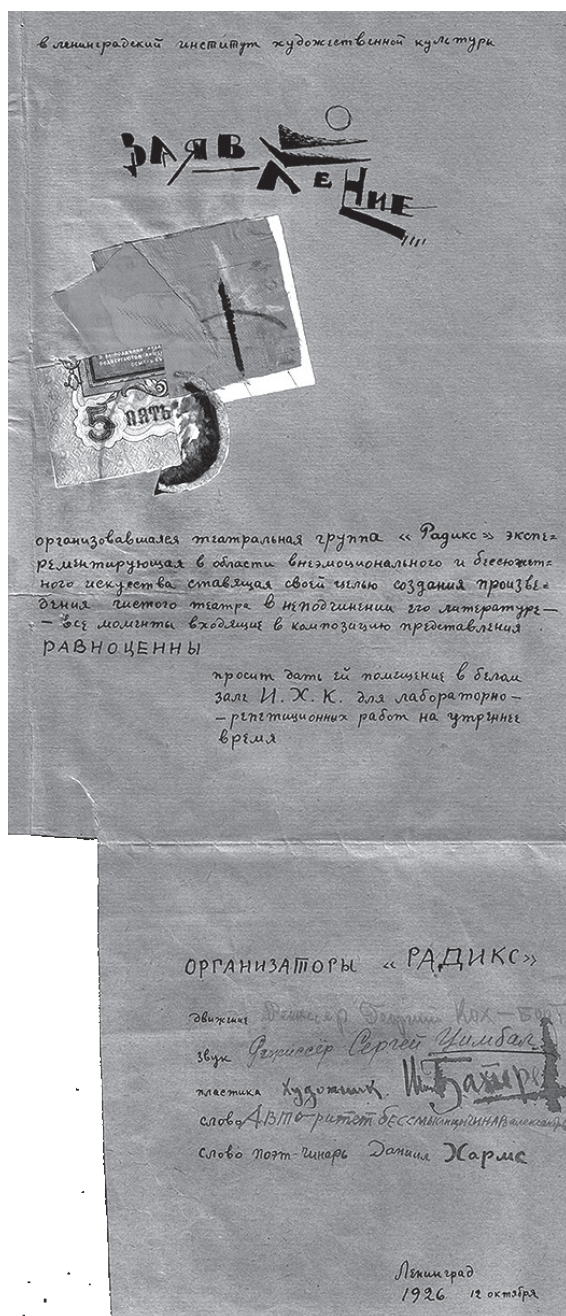 в ленинградский институт художественной культуры
ЗАЯВЛЕНИЕ
5 ПЯТЬ
организовавшаяся театральная группа «Радикс» экспе=
рементирующая в области внеэмоционального и бессюжет=
ного искусства ставящая своей целью создания произве=
дения чистого театра в неподчинении его литературе—
— все моменты входящие в композицию представления.
РАВНОЦЕННЫ
просит дать ей помещение в белом
зале И. Х. К. для лабораторно—
—репетиционных работ на утреннее
время
ОРГАНИЗАТОРЫ «РАДИКС»
движение Режиссер Георгий Кох—Боот
звук Режиссёр Сергей Цимбал
пластика художник.
слово АВТО-ритет бессмыслицы ЧИНАР александр
слово поэт-чинарь Даниил Хармс
Ленинград
1926 12 октября